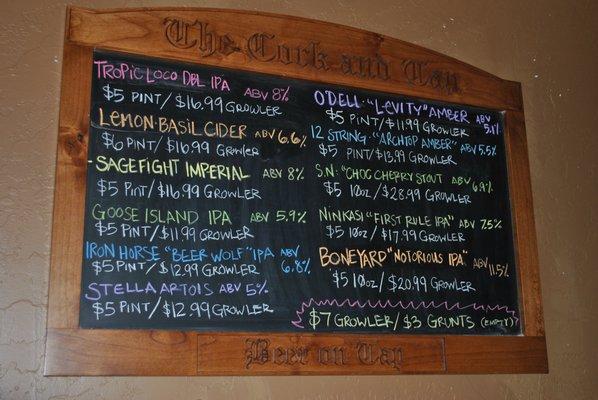 The Cork and Tap
TROPIC LOCO DBL IPA ABV 8%
$5 PINT/$16.99 GROWLER
LEMON-BASIL CIDER ABV 6.6%
$6 PINT/$16.99 GROWLER
-SAGEFIGHT IMPERIAL ABV 8%
$5 PINT/$16.99 GROWLER
GOOSE ISLAND IPA ABV 5.9%
$5 PINT/$11.99 GROWLER
IRON HORSE "BEER WOLF" IPA ABV 6.8%
$5 PINT/$12.99 GROWLER
STELLA ARTOIS ABV 5%
$5 PINT/$12.99 GROWLER
O'DELL-"LEVITY" AMBER ABV 5.1%
$5 PINT/$11.99 GROWLER
12 STRING-"ARCHTOP AMBER" ABV 5.5%
$5 PINT/$13.99 GROWLER
S.N. "CHOC CHERRY STOUT ABV 6.9%
$5 10oz/$28.99 GROWLER
NINKASI "FIRST RULE IPA" ABV 7.5%
$5 10oz/$17.99 GROWLER
BONEYARD "NOTORIOUS IPA" ABV 11.5%
$5 10oz/$20.99 GROWLER
$7 GROWLER/$3 GRUNTS (EMPTY)
Beer on Tap